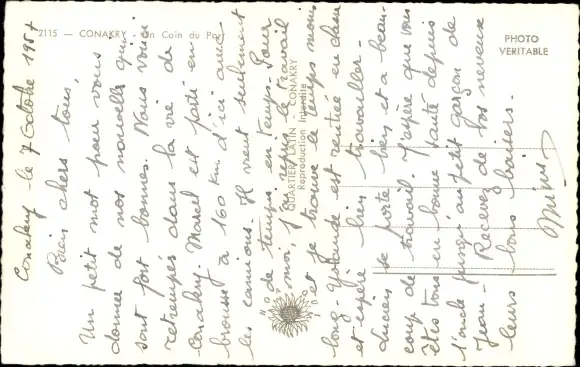 2115 — CONAKRY - Un Coin du Port
PHOTO
VERITABLE
QUARTIER LATIN - CONAKRY
Reproduction Interdite
Conakry le 7 Octobre 1957
Bien chers tous,
Un petit mot pour vous
donner de nos nouvelles qui
sont fort bonnes. Nous voici
retrempés dans la vie de
Conakry. Marcel est parti en
brousse à 160 km d'ici avec
les camions. Il vient seulement
de temps en temps. Pour
moi, j'ai repris le travail
et je trouve le temps moins
long. Yolande est rentrée en
et espère bien travailler.
Lucien se porte bien et a beau-
coup de travail. J'espère que vous
êtes tous en bonne santé depuis
l'oncle jusqu'au petit garçon de
Jean. Recevez de vos neveux
leurs bons baisers.